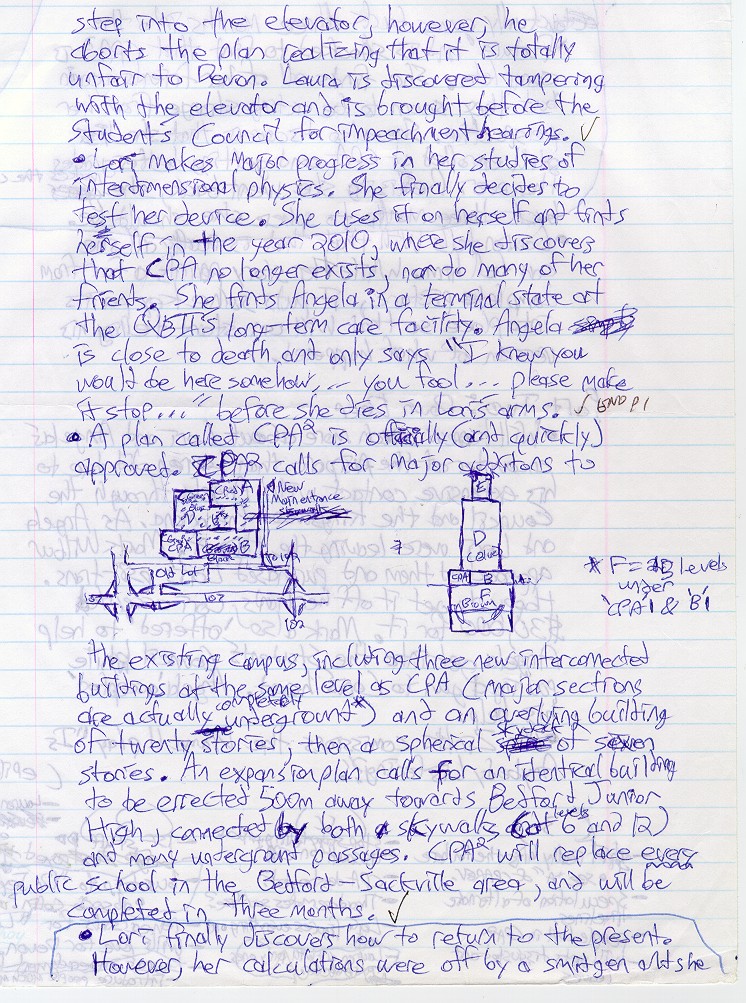 step into the elevator, however, he
aborts the plan realizing that it is totally
unfair to Devon. Laura is discovered tampering
with the elevator and is brought before the
Student's Council for impeachment hearings. ✓
• Lori makes major progress in her studies of
interdimensional physics. She finally decides to
test her device. She uses it on herself and finds
herself in the year 2010, where she discovers
that CPA no longer exists, nor do many of her
friends. She finds Angela in a terminal state at
the QEII's long-term care facility. Angela
is close to death and only says "I knew you
would be here somehow... you fool... please make
it stop..." before she dies in Lori's arms. ✓ END P1
• A plan called CPA² is officially (and quickly)
approved. CPA² calls for major additons to
New
Main entrance
CPA
B
Old Lot
102
102
E
D
(Blue)
CPA B
F
Brown
* F = levels
under
'CPA' & 'B'
the existing campus, including three new interconnected
buildings at the same level as CPA (major sections
are actually completely underground*) and an overlying building
of twenty stories, then a spherical skydeck of seven
stories. An expansion plan calls for an identical building
to be errected 500m away towards Bedford Junior
High, connected by both skywalks (at levels 6 and 12)
and many undergrount passages. CPA² will replace every
public school in the Bedford-Sackville area, and will be
completed in three months. ✓
• Lori finally discovers how to return to the present.
However, her calculations were off by a smidgen and she